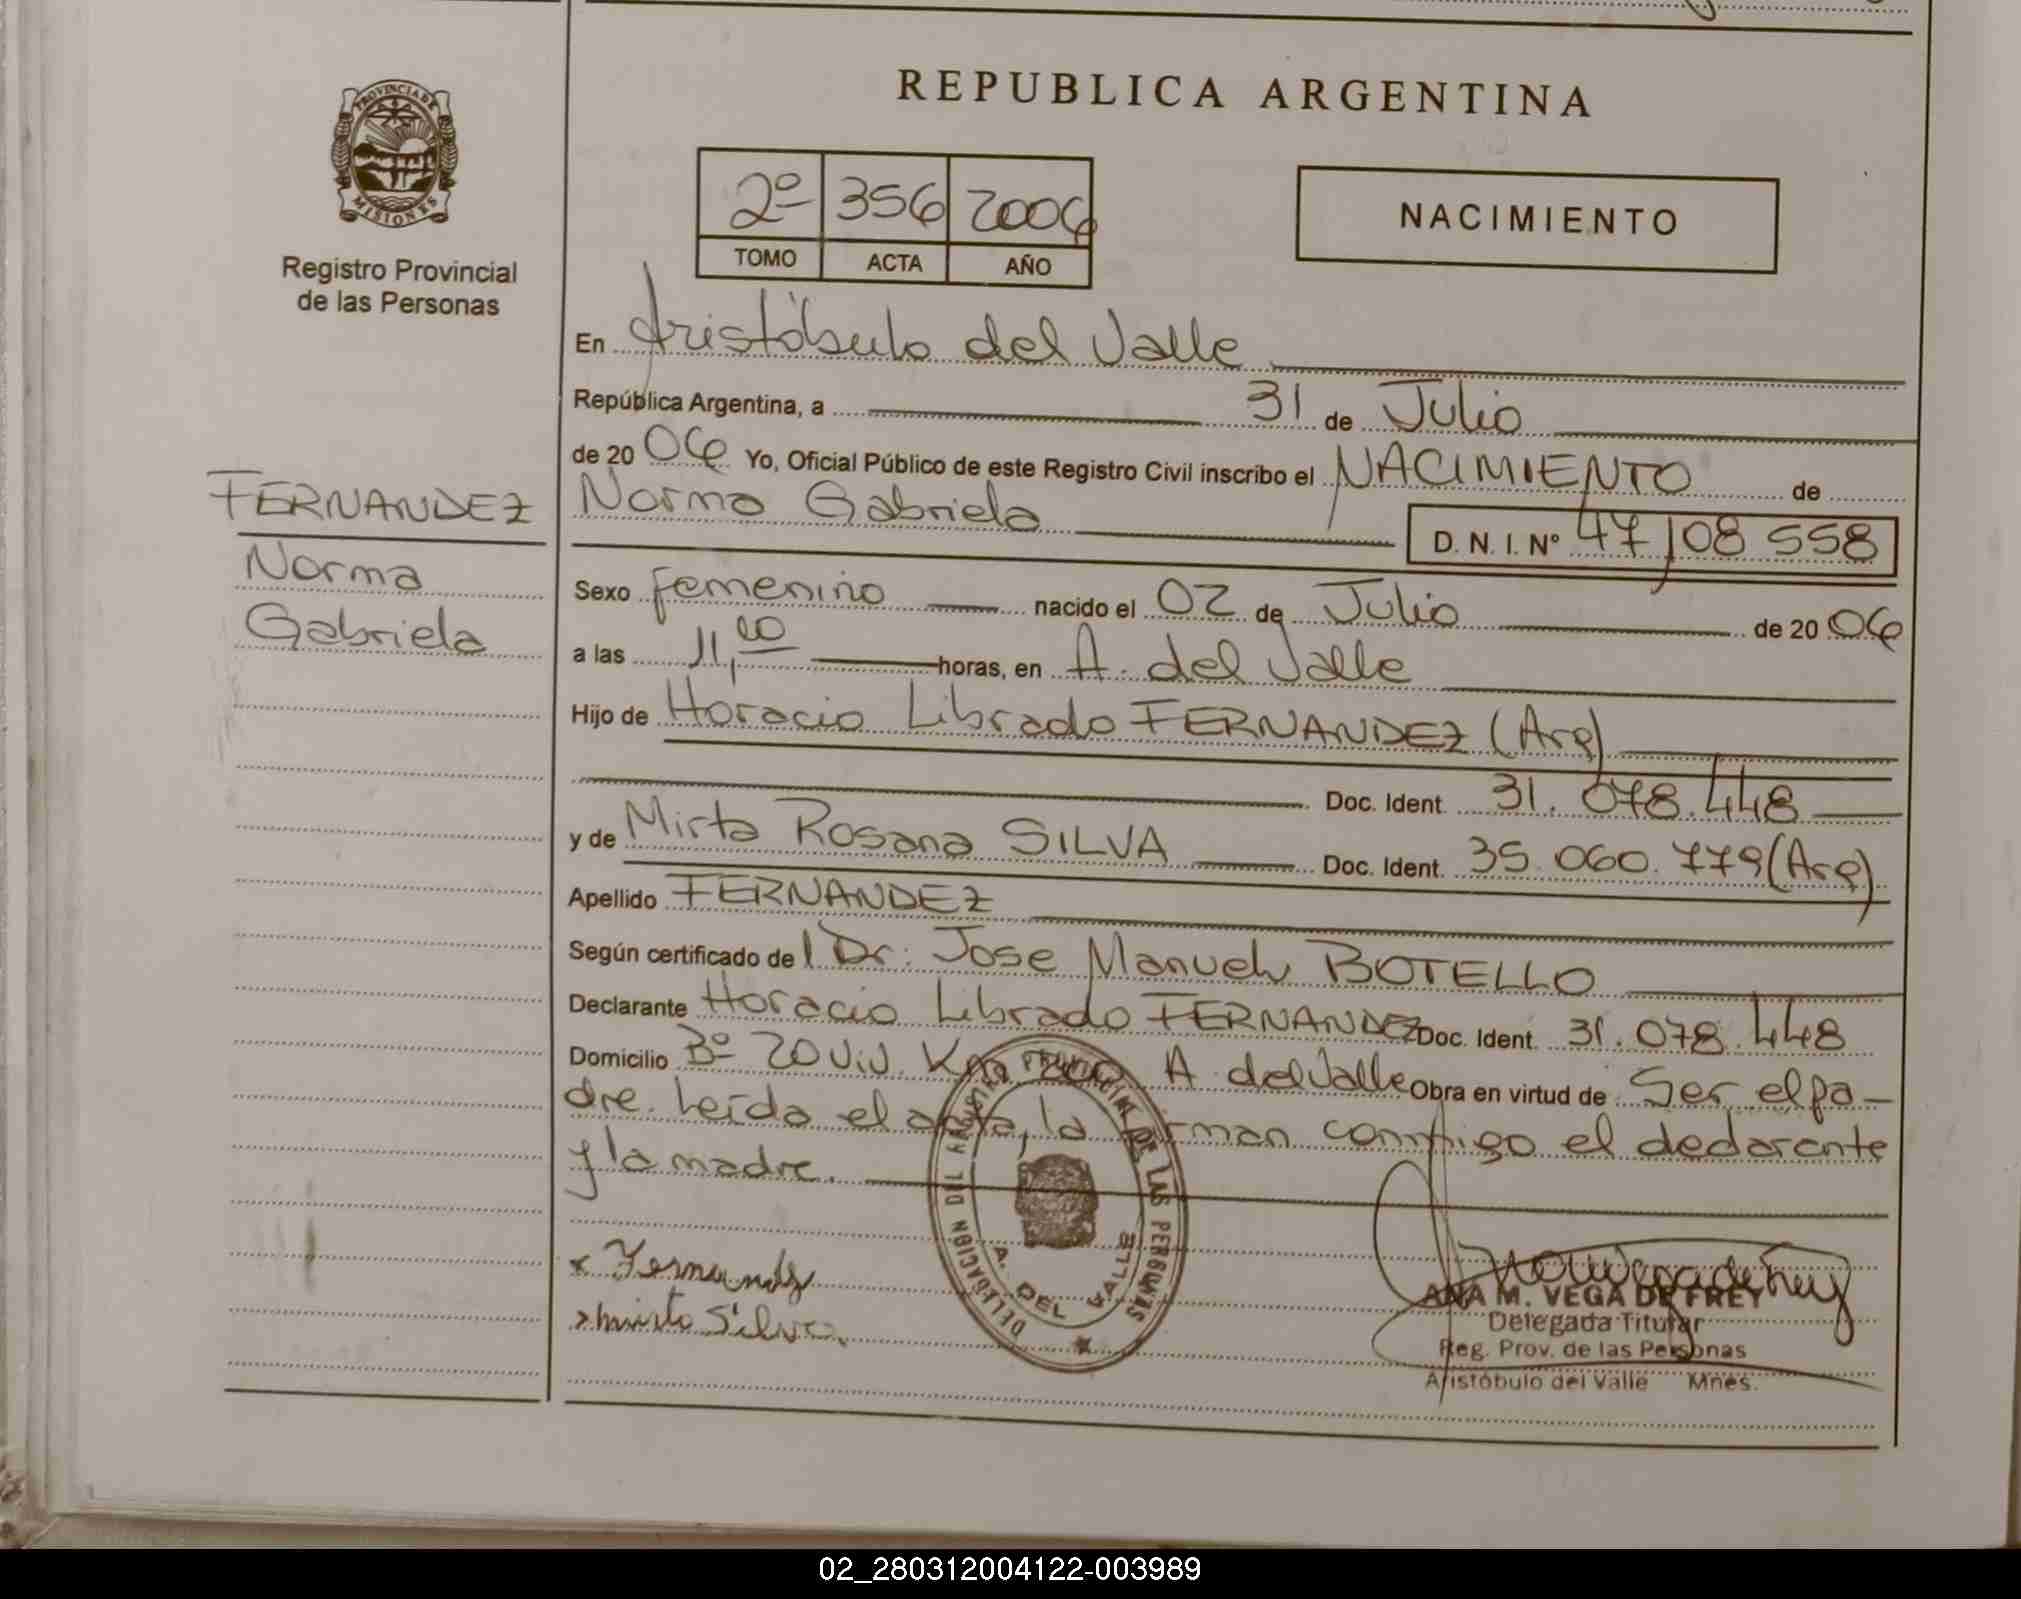 REPUBLICA ARGENTINA
PROVINCIA DE MISIONES
Registro Provincial
de las Personas
2º 356 2006
TOMO ACTA AÑO
NACIMIENTO
En Aristóbulo del Valle
República Argentina, a 31 de Julio
de 2006 Yo, Oficial Público de este Registro Civil inscribo el NACIMIENTO de
FERNANDEZ
Norma
Gabriela
Norma Gabriela
D. N. I. Nº 47108558
Sexo femenino nacido el 02 de Julio de 2006
a las 11,00 horas, en A. del Valle
Hijo de Horacio Librado FERNANDEZ (Arg)
Doc. Ident. 31.078.448
y de Mirta Rosana SILVA Doc. Ident. 35.060.779 (Arg)
Apellido FERNANDEZ
Según certificado del Dr. Jose Manuel BOTELLO
Declarante Horacio Librado FERNANDEZ Doc. Ident. 31.078.448
Domicilio Bº 20 Viv. A del Valle Obra en virtud de Ser el pa-
dre. Leída el acta, la firman conmigo el declarante
y la madre.
x Fernandez
x mirta Silva.
DELEGACION DEL REGISTRO PROVINCIAL DE LAS PERSONAS
A. DEL VALLE
ANA M. VEGA DE FREY
Delegada Titular
Reg. Prov. de las Personas
Aristóbulo del Valle Mnes.
02_280312004122-003989